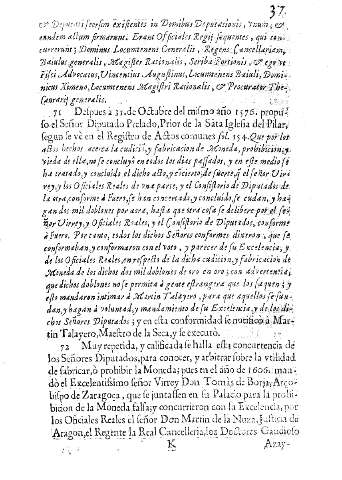 37
& Deputati seorsum existentis in Domibus Deputationis, vnum, &
eundem actum firmarunt. Erant Officiales Regij sequentes, qui con-
currerunt; Dominus Locumtenens Generalis, Regens Cancellariam,
Baiulus generalis, Magister Rationalis, Scriba Portionis, & ego
Fisci Advocatus, Vincentius Augustinus, Locumtenens Baiuli, Domi-
nicus Ximeno, Locumtenens Magistri Rationalis, & Procurator The-
saurarij generalis.
71 Despues à 31. de Octubre del mismo año 1576. propu-
so el Señor Diputado Prelado, Prior de la Sāta Iglesia del Pilar,
segun se vè en el Registro de Actos comunes fol. 154. Que por los
actos hechos acerca la cudicíō, y fabricacion de Moneda, prohibicion, y
vieda de ella, no se concluyò en todos los dias passados, y en este medio se
ha tratado, y concluido el dicho acto, y es cierto, de suerte, q̃ el Señor Vir-
rey, y los Oficiales Reales de vna parte, y el Consistorio de Diputados de
la otra, conforme à Fuero, se han concertado, y concluìdo, se cudan, y ha-
gan dos mil doblones por aora, hasta que otra cosa se delibere por el se-
ñor Virrey, y Oficiales Reales, y el Consistorio de Diputados, conforme
à Fuero. Por tanto, todos los dichos Señores conformes dixeron, que se
conformaban, y conformaron con el voto, y parecer de su Excelencia, y
de los Oficiales Reales, en respecto de la dicha cudicion, y fabricacion de
Moneda de los dichos dos mil doblones de oro en oro; con advertencia,
que dichos doblones no se permita à gente estrangera que los saquen; y
esto mandaron intimar à Martin Talayero, para que aquellos se fun-
dan, y hagan à voluntad, y mandamiento de su Excelencia, y de los di-
chos Señores Diputados; y en esta conformidad se notificò à Mar-
tin Talayero, Maestro de la Seca, y se executò.
72 Muy repetida, y calificada se halla esta; concurrencia de
los Señores Diputados, para conocer, y arbitrar sobre la vtilidad
de fabricar, ò prohibir la Moneda; pues en el año de 1606. man-
dò el Excelentissimo señor Virrey Don Tomàs de Borja, Arço-
bispo de Zaragoça, que se juntassen en su Palacio para la prohi-
bicion de la Moneda falsa; y concurrieron con la Excelencia, por
los Oficiales Reales el señor Don Martin de la Noza, Justicia de
Aragon, el Regente la Real Cancelleria, los Doctores Gaudioso
K Azay-